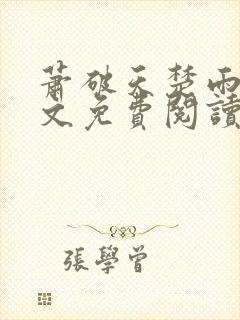 蕭破天楚雨
文免費閱讀
張學曾